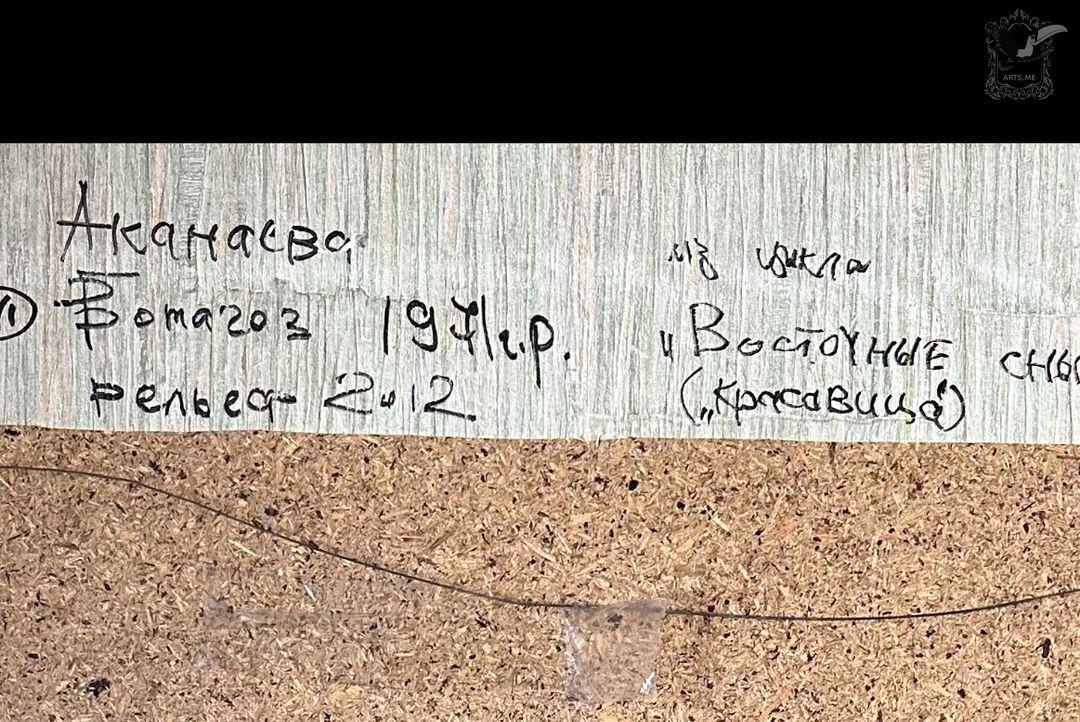 Аканаева
из цикла
① Ботагоз 1971 г.р.
"Восточные сны
рельеф 2012.
("красавица")
ARTS.ME